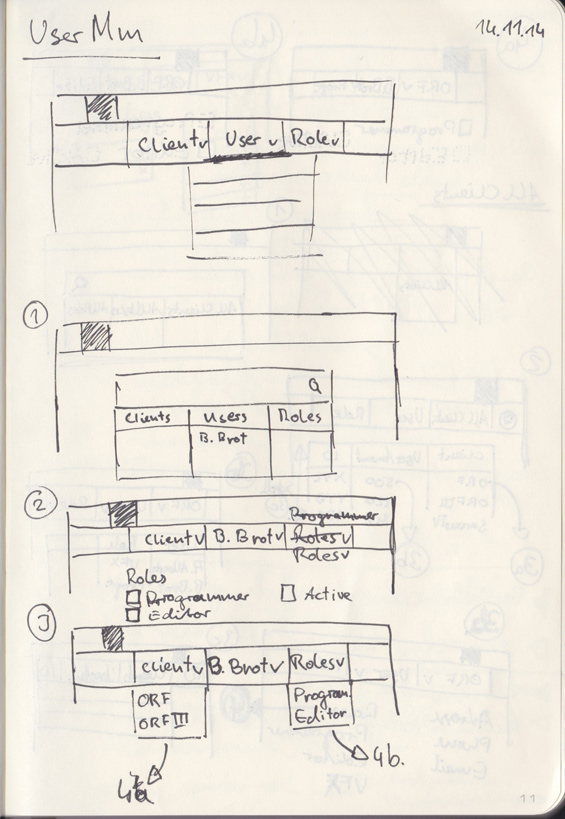 User Mm
14.11.14
Client v User v Role v
1
Q
Clients Users Roles
B. Brot
2
Programmer
Client v B. Brot v Roles v
Roles v
Roles
Programmer Active
Editor
3
Client v B. Brot v Roles v
ORF Program.
ORF III Editor
4a 4b.
11